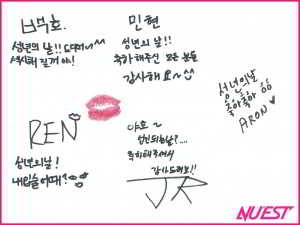 백호
성년의 날!! 드디어~~
민현
성년의 날!!
축하해주신 모든 분들
감사해요~
성년의날
축하축하
ARON
REN
성년의날!
내 입술 어때?
야호~
성년의날?....
축하해주셔서
감사드려요!!
JR
NUEST